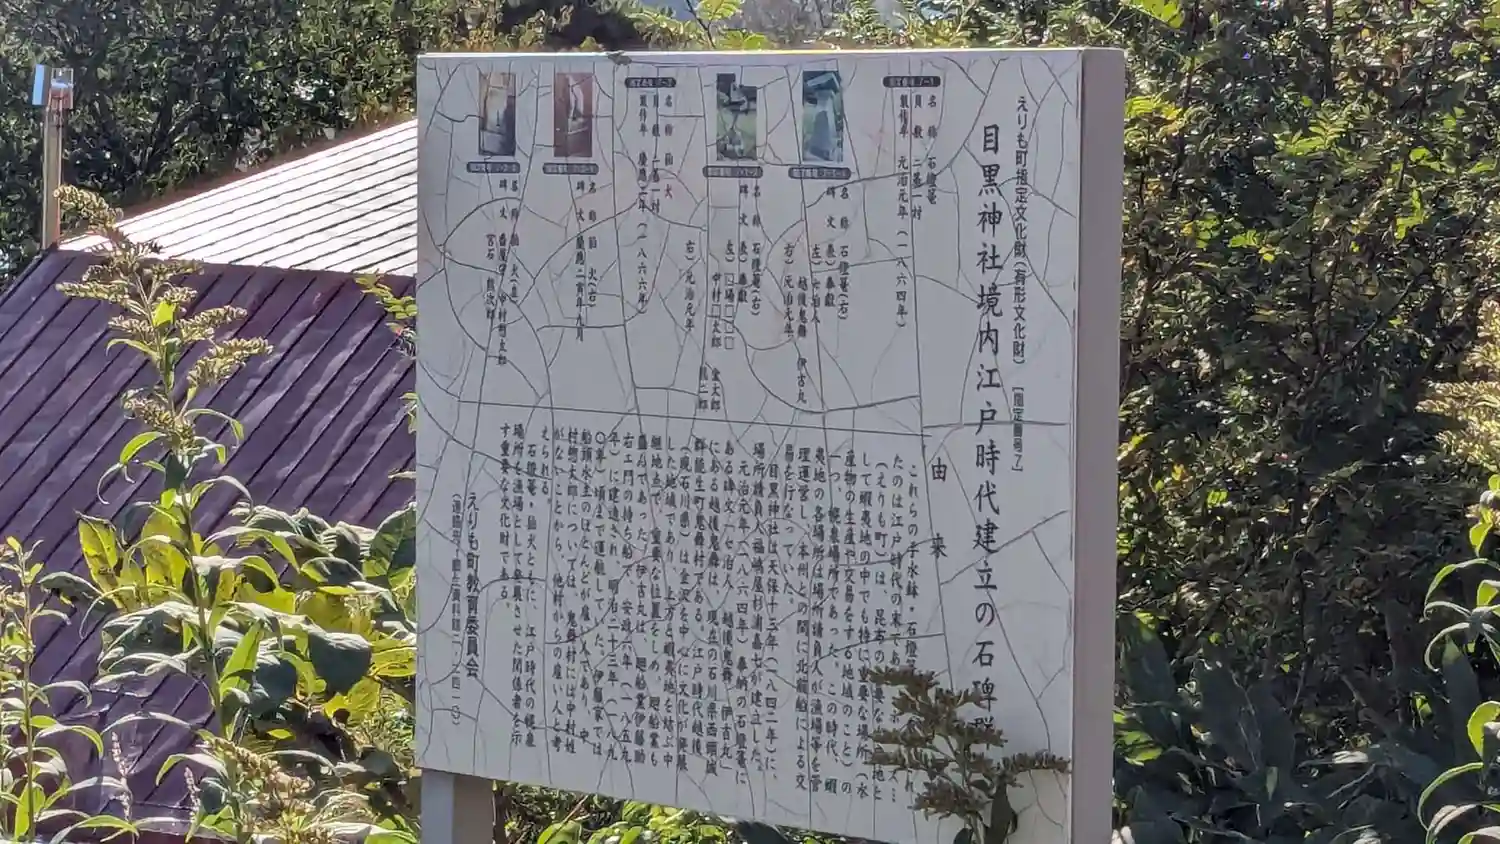 えりも町指定文化財(有形文化財) [指定番号7]
目黒神社境内江戸時代建立の石碑群
名称 石燈篭
員数 二基一対
製作年 元治元年(一八六四年)
名称 石燈篭(左)
碑文 表)奉献
左)セ泊人
越後鬼舞 伊古丸
右)元治元年
名称 石燈篭(右)
碑文 表)奉献
左)□場□□□
中村□太郎 金太郎
右)元治元年
名称 狛犬
員数 二基一対
製作年 慶応二年(一八六六年)
名称 狛犬(右)
碑文 慶応二寅年八月
名称 狛犬(左)
碑文 番屋守 中村惣太郎
由来
これらの手水鉢・石燈
たのは江戸時代の末であ
(えりも町)は、昆布の
して蝦夷地の中でも特に重要な場所(水
産物の生産や交易をする地域のこと)の
一つ、幌泉場所であった。この時代、蝦
夷地の各場所は場所請負人が漁場等を管
理運営し、本州との間に北前船による交
易を行なっていた。
目黒神社は天保十三年(一八四二年)に、
場所請負人福嶋屋杉浦嘉七が建立した。
元治元年(一八六四年)奉納の石燈篭に
ある碑文「セ泊人、越後鬼舞、伊古丸」
にある越後鬼舞は、現在の石川県西頚城
郡能生町鬼舞村である。江戸時代越後、
(現石川県)は金沢を中心に文化が発展
した地域であり、上方と蝦夷地を結ぶ中
継地点で、重要な位置をしめ、廻船業も
盛んであった。伊古丸は、廻船業伊藤助
右エ門の持ち船で、安政六年(一八五九
年)に建造され、明治二十三年(一八九
〇年)頃まで運航していた。伊藤家では
船頭水主のほとんどが雇い人であり、中
村惣太郎については、鬼舞村には中村姓
がないことから、他村からの雇い人と考
えられる。
石燈篭・狛犬ともに、江戸時代の幌泉
場所を漁場として栄えさせた関係者を示
す重要な文化財である。
えりも町教育委員会